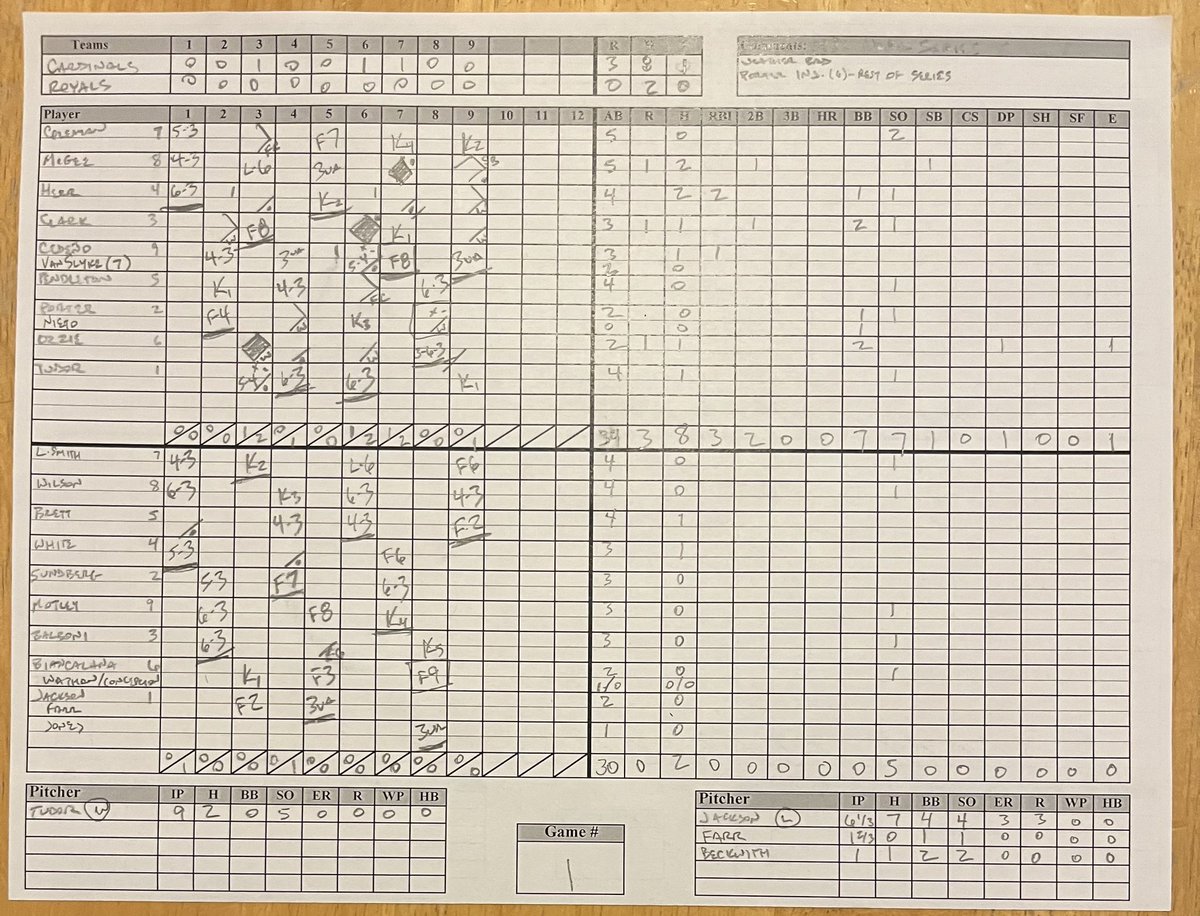 Teams 1 2 3 4 5 6 7 8 9 R
CARDINALS 0 0 1 0 0 1 1 0 0 3 8
ROYALS 0 0 0 0 0 0 0 0 0 0 2 0
PORTER INJ. (6) - REST OF SERIES
Player 1 2 3 4 5 6 7 8 9 10 11 12 AB R H RBI 2B 3B HR BB SO SB CS DP SH SF E
COLEMAN 7 5-3 F7 K4 K2 5 0 2
McGEE 8 4-3 L-6 3UA 5 1 2 1 1
HERR 4 6-3 1 K2 1 4 2 2 1 1
CLARK 3 F8 K1 3 1 1 1 2 1
CEDEÑO 9 4-3 3UA 1 5-4 F8 3UA 3 1 1
VAN SLYKE (7) 2 0
PENDLETON 5 K1 4-3 FC 6-3 4 0 1
PORTER 2 F-4 K3 2 0 1 1
NIETO 0 0 1
OZZIE 6 5-6-3 2 1 1 2 1 1
TUDOR 1 5-4 6-3 6-3 K1 4 1 1
0/0 0/0 1/2 0/1 0/0 1/2 1/2 0/0 0/1 34 3 8 3 2 0 0 7 7 1 0 1 0 0 1
L. SMITH 7 4-3 K2 L-6 F6 4 0 1
WILSON 8 6-3 K3 6-3 4-3 4 0 1
BRETT 5 4-3 4-3 F-2 4 1
WHITE 4 5-3 F6 3 1
SUNDBERG 2 5-3 F7 6-3 3 0
MOTLEY 9 6-3 F8 K4 3 0 1
BALBONI 3 6-3 K5 3 0 1
BIANCALANA 6 K1 F3 F9 2 0 1
WATHAN/CONCEPCION 1/0 0/0
JACKSON 1 F2 3UA 2 0
FARR
JONES 3UA 1 0
0/1 0/0 0/0 0/1 0/0 0/0 0/0 0/0 0/0 30 0 2 0 0 0 0 0 5 0 0 0 0 0 0
Pitcher IP H BB SO ER R WP HB
TUDOR (W) 9 2 0 5 0 0 0 0
Game #
1
Pitcher IP H BB SO ER R WP HB
JACKSON (L) 6 1/3 7 4 4 3 3 0 0
FARR 1 2/3 0 1 1 0 0 0 0
BECKWITH 1 1 2 2 0 0 0 0